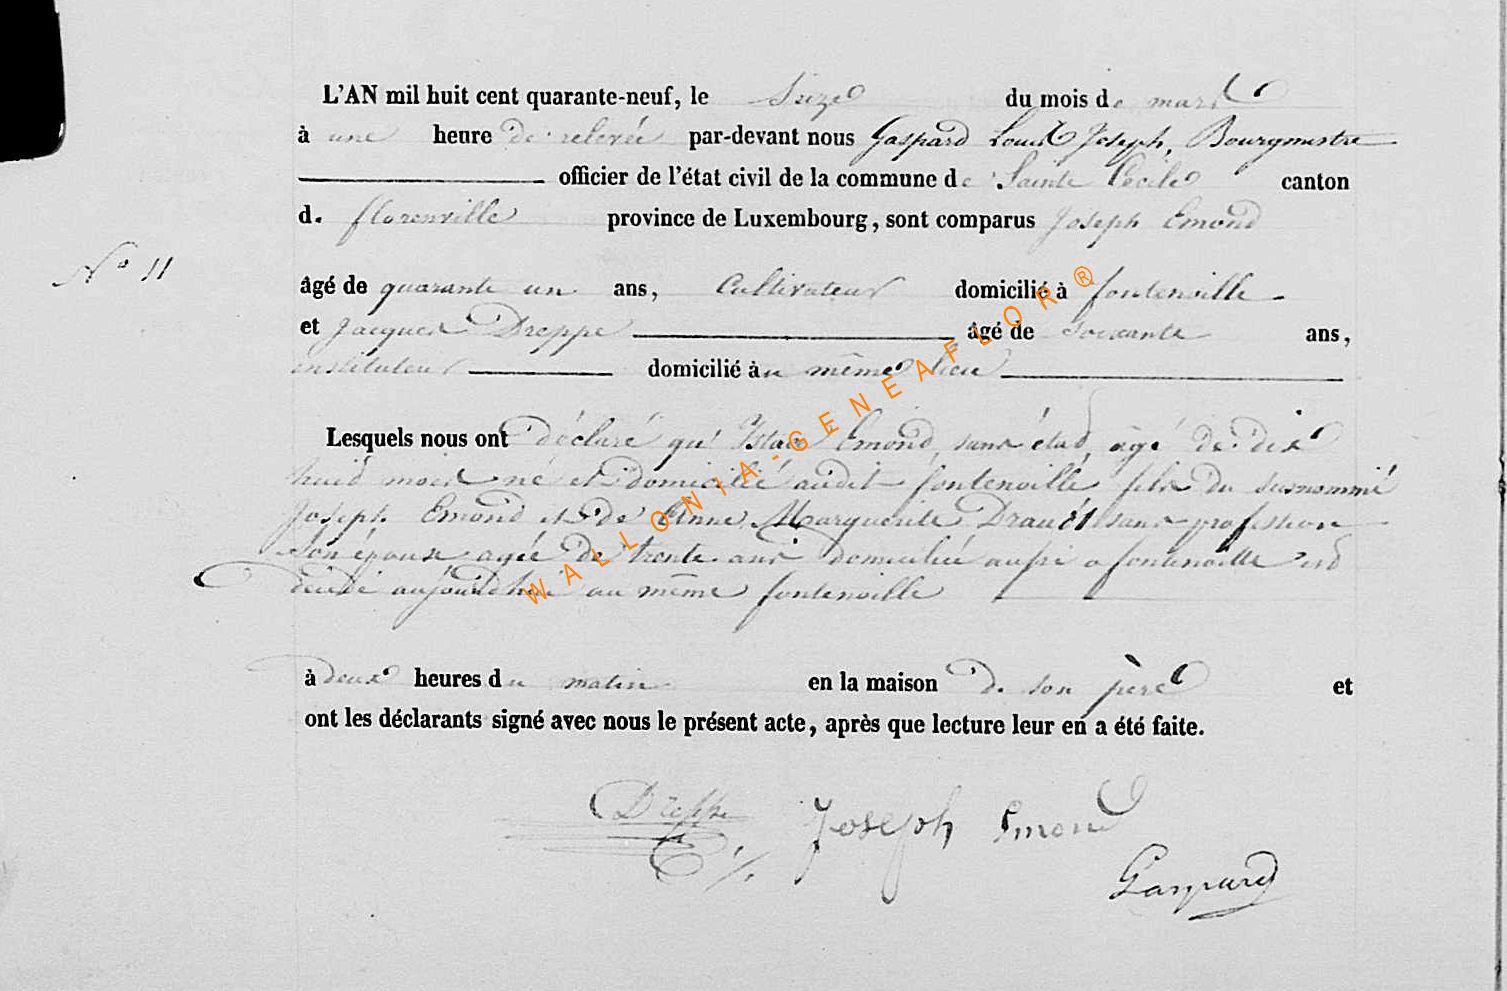 L'AN mil huit cent quarante-neuf, le Seize du mois de mars
à une heure de relevée par-devant nous Gaspard Louis Joseph, Bourgmestre
officier de l'état civil de la commune de Sainte Cécile canton
d. florenville province de Luxembourg, sont comparus Joseph Emond
N° 11
âgé de quarante un ans, Cultivateur domicilié à fontenoille
et Jacques Dreppe âgé de soixante ans,
instituteur domicilié au même lieu
Lesquels nous ont déclaré qu' Emond, sans état, âgé de dix
huit mois né et domicilié audit fontenoille fils du susnommé
Joseph Emond et de Anne Marguerite sans profession
son épouse agée de trente ans domiciliée aussi a fontenoille est
décédé aujourdhui au même fontenoille
à deux heures du matin en la maison de son père et
ont les déclarants signé avec nous le présent acte, après que lecture leur en a été faite.
Dreppe Joseph Emond
Gaspard
WALLONIA-GENEAFLOR®